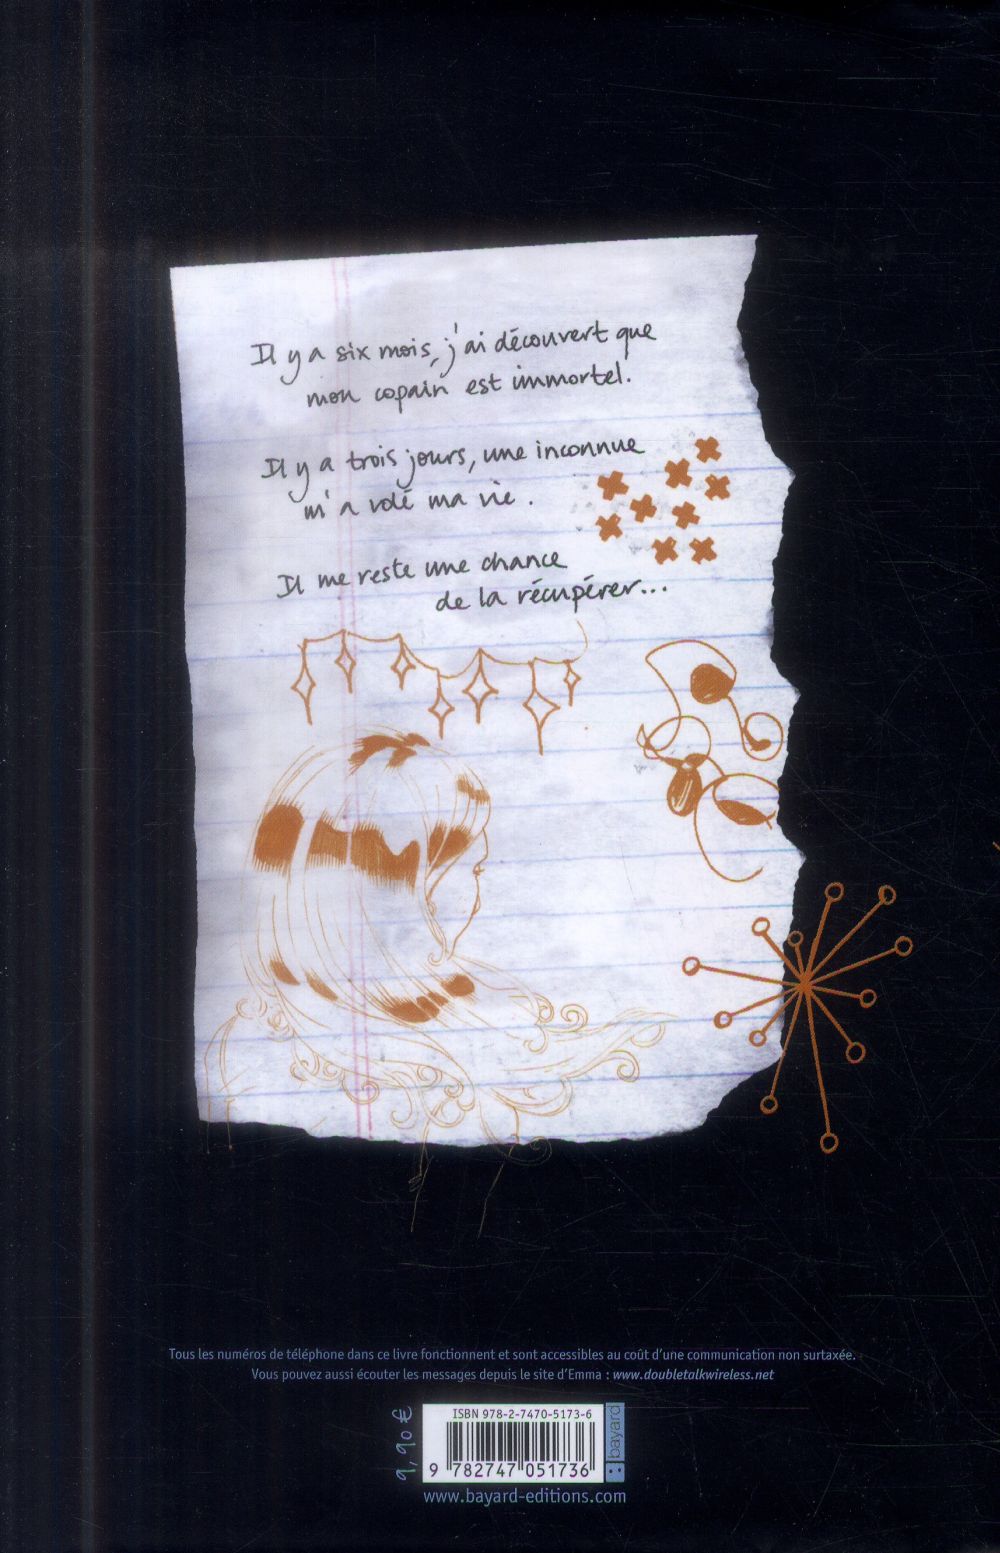 Il y a six mois, j'ai découvert que
mon copain est immortel.
Il y a trois jours, une inconnue
m'a volé ma vie.
Il me reste une chance
de la récupérer...
Tous les numéros de téléphone dans ce livre fonctionnent et sont accessibles au coût d'une communication non surtaxée.
Vous pouvez aussi écouter les messages depuis le site d'Emma : www.doubletalkwireless.net
9,90 €
ISBN 978-2-7470-5173-6
bayard
9 782747 051736
www.bayard-editions.com